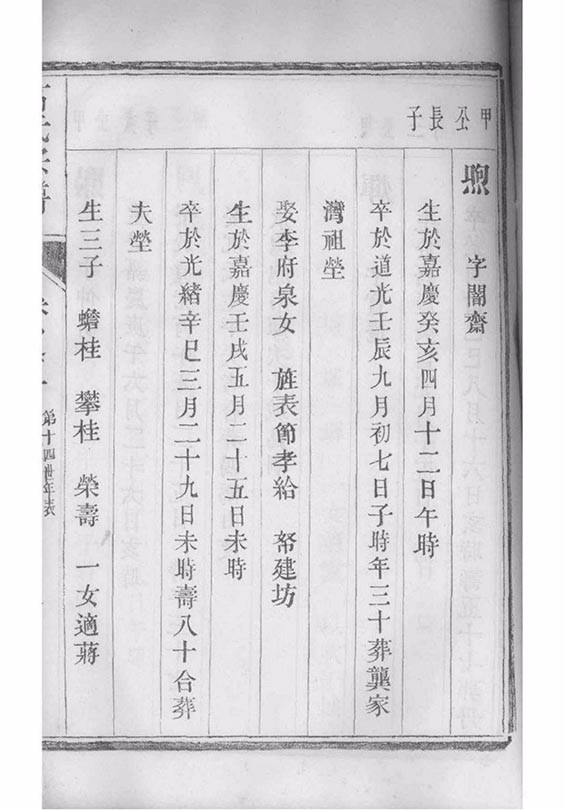 甲公長子
煦 字闇齋
生於嘉慶癸亥四月十二日午時
卒於道光壬辰九月初七日子時年三十葬龔家
灣祖塋
娶李府泉女 旌表節孝給 帑建坊
生於嘉慶壬戌五月二十五日未時
卒於光緒辛巳三月二十九日未時壽八十合葬
夫塋
生三子 蟾桂 攀桂 榮壽 一女適蔣
第十四世年表